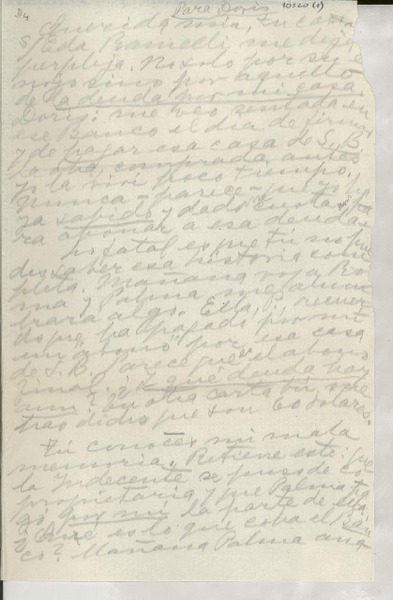 Para Doris
Querida mía, Tu carta
s Eda Ramelli, me deja
perpleja. No solo por su e
nojo sino por aquello
de la deuda por mi casa.
Doris: me veo sentada en
ese Banco el día de firmar
y de pagar esa casa de S.B.
La otra, comprada antes
yo la viví poco tiempo, y
nunca - parece -
ya sabido y dado
ra abonar a esa deuda.
Lo fatal es que tú no pue
des saber esa historia com
pleta. Mañana voy a Ro
ma y Palma me alum
brará algo. Ella, sí, recuer
do que ha pagado por mí
un "abono" por esa casa
de S.B. Parece que el abono
final. ¿Y qué deuda hay
aun? En otra carta tú me
has dicho que son 60 dolares.
Tú conoces mi mala
memoria. Retiene esto: que
la Indecente se puso de co
propietaria y que Palma pa
gó por mí la parte de ella.
¿Qué es lo que cobra el Ban
co? Mañana Palma